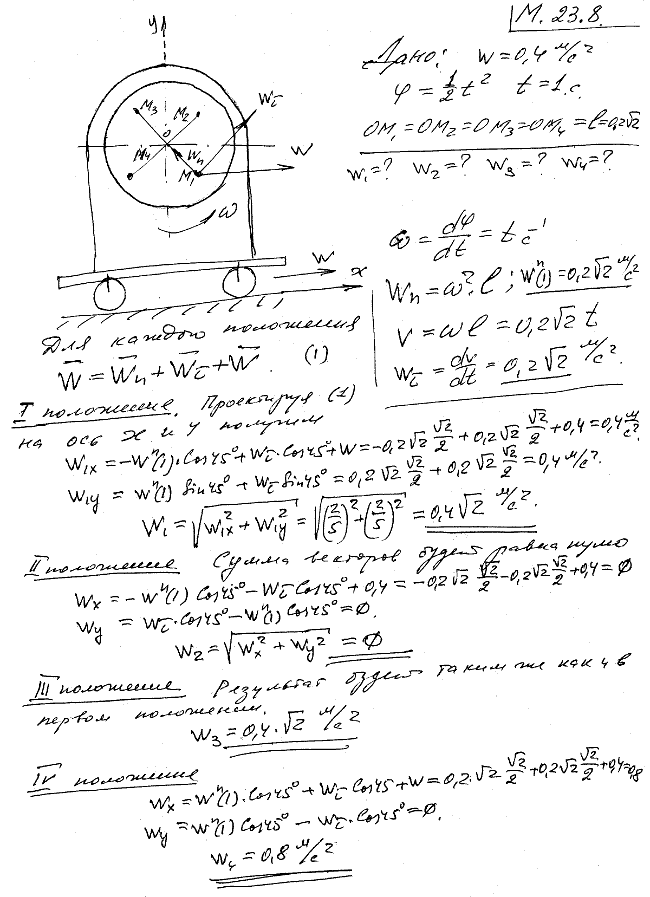 М. 23.8.
Дано: W = 0,4 м/с²
φ = 1/2 t² t = 1 с.
OM₁ = OM₂ = OM₃ = OM₄ = l = 0,2√2
W₁ = ? W₂ = ? W₃ = ? W₄ = ?
y
M₃ M₂
O
M₄ Wn M₁
Wτ
W
ω
W
x
ω = dφ/dt = t c⁻¹
Wn = ω²·l ; Wⁿ(1) = 0,2√2 м/с²
V = ωl = 0,2√2 t
Wτ = dv/dt = 0,2√2 м/с².
Для каждого положения
W̅ = W̅n + W̅τ + W̅. (1)
I положение. Проектируя (1)
на ось x и y получим
W₁x = -Wⁿ(1)·Cos45° + Wτ·Cos45° + W = -0,2√2 √2/2 + 0,2√2 √2/2 + 0,4 = 0,4 м/с².
W₁y = Wⁿ(1) Sin45° + Wτ Sin45° = 0,2√2 √2/2 + 0,2√2 √2/2 = 0,4 м/с².
W₁ = √(W₁x² + W₁y²) = √((2/5)² + (2/5)²) = 0,4√2 м/с².
II положение Сумма векторов будет равна нулю
Wx = -Wⁿ(1) Cos45° - Wτ Cos45° + 0,4 = -0,2√2 √2/2 - 0,2√2 √2/2 + 0,4 = 0
Wy = Wτ·Cos45° - Wⁿ(1) Cos45° = 0.
W₂ = √(Wx² + Wy²) = 0
III положение Результат будет таким же как и в
первом положении.
W₃ = 0,4·√2 м/с²
IV положение
Wx = Wⁿ(1)·Cos45° + Wτ Cos45 + W = 0,2·√2 √2/2 + 0,2√2 √2/2 + 0,4 = 0,8
Wy = Wⁿ(1) Cos45° - Wτ·Cos45° = 0.
W₄ = 0,8 м/с²